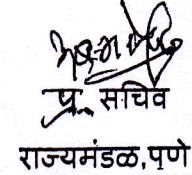 प्र. सचिव
राज्यमंडळ,पुणे